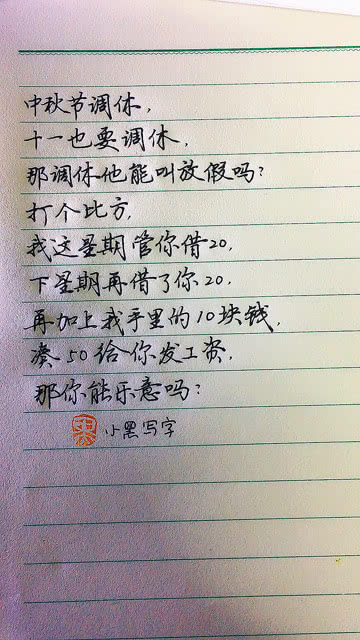 中秋节调休,
十一也要调休,
那调休他能叫放假吗?
打个比方,
我这星期管你借20,
下星期再借了你20,
再加上我手里的10块钱,
凑50给你发工资,
那你能乐意吗?
小黑写字